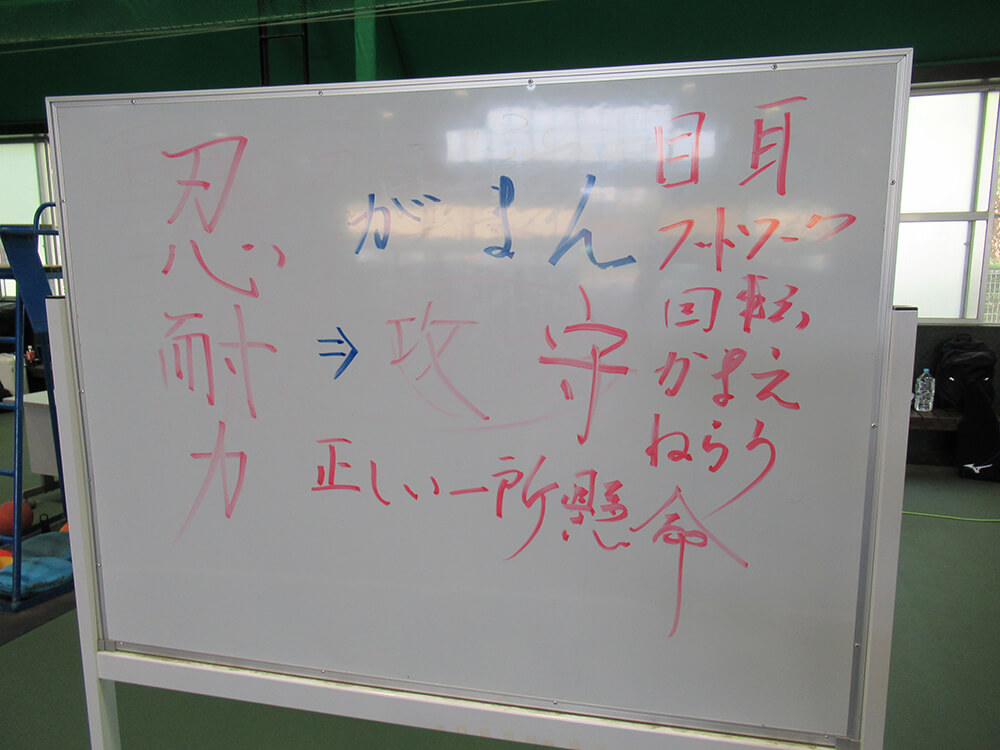 忍耐力
がまん
⇒ 攻守
正しい一所懸命
目 耳
フットワーク
回転
かまえ
ねらう